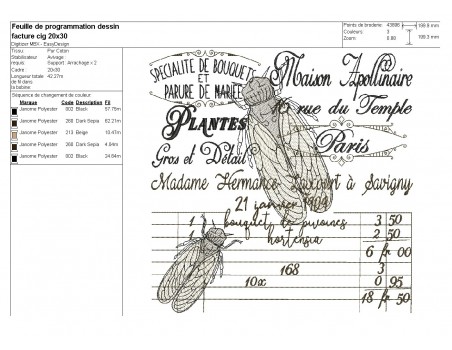 Feuille de programmation dessin
facture cig 20x30
Digitizer MBX - EasyDesign
Points de broderie : 43896
Couleurs : 3
Zoom : 0.88
199.8 mm
199.3 mm
Tissu : Pur Coton
Stabilisateur Avivage :
Requis : Support : Arrachage x 2
Cadre 20x30
Longueur totale 42.27m
de fil dans
la bannière:
Séquence de changement de couleur
Marque Code Description Fil
Janome Polyester 002 Black 57.79m
Janome Polyester 260 Dark Sepia 62.21m
Janome Polyester 213 Beige 10.47m
Janome Polyester 260 Dark Sepia 4.94m
Janome Polyester 002 Black 24.84m
SPECIALITE DE BOUQUETS
ET
PARURE DE MARIEE
Maison Apollinaire
rue du Temple
PLANTES
Paris
Gros et Détail
Madame Hermance à Savigny
21 janvier
bouquets de pivoines 3 50
hortensia 2 50
6 fr 00
168 3
10x 0 95
18 fr 50